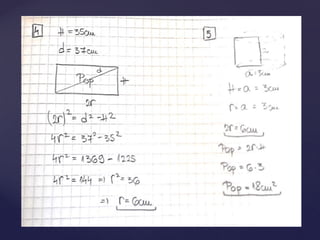 4
H = 35cm
d = 37cm
d
Pop
H
2r
(2r)² = d² - H²
4r² = 37² - 35²
4r² = 1369 - 1225
4r² = 144 => r² = 36
=> r = 6cm
5
a = 3cm
H = a = 3cm
r = a = 3cm
2r = 6cm
Pop = 2r·H
Pop = 6·3
Pop = 18cm²